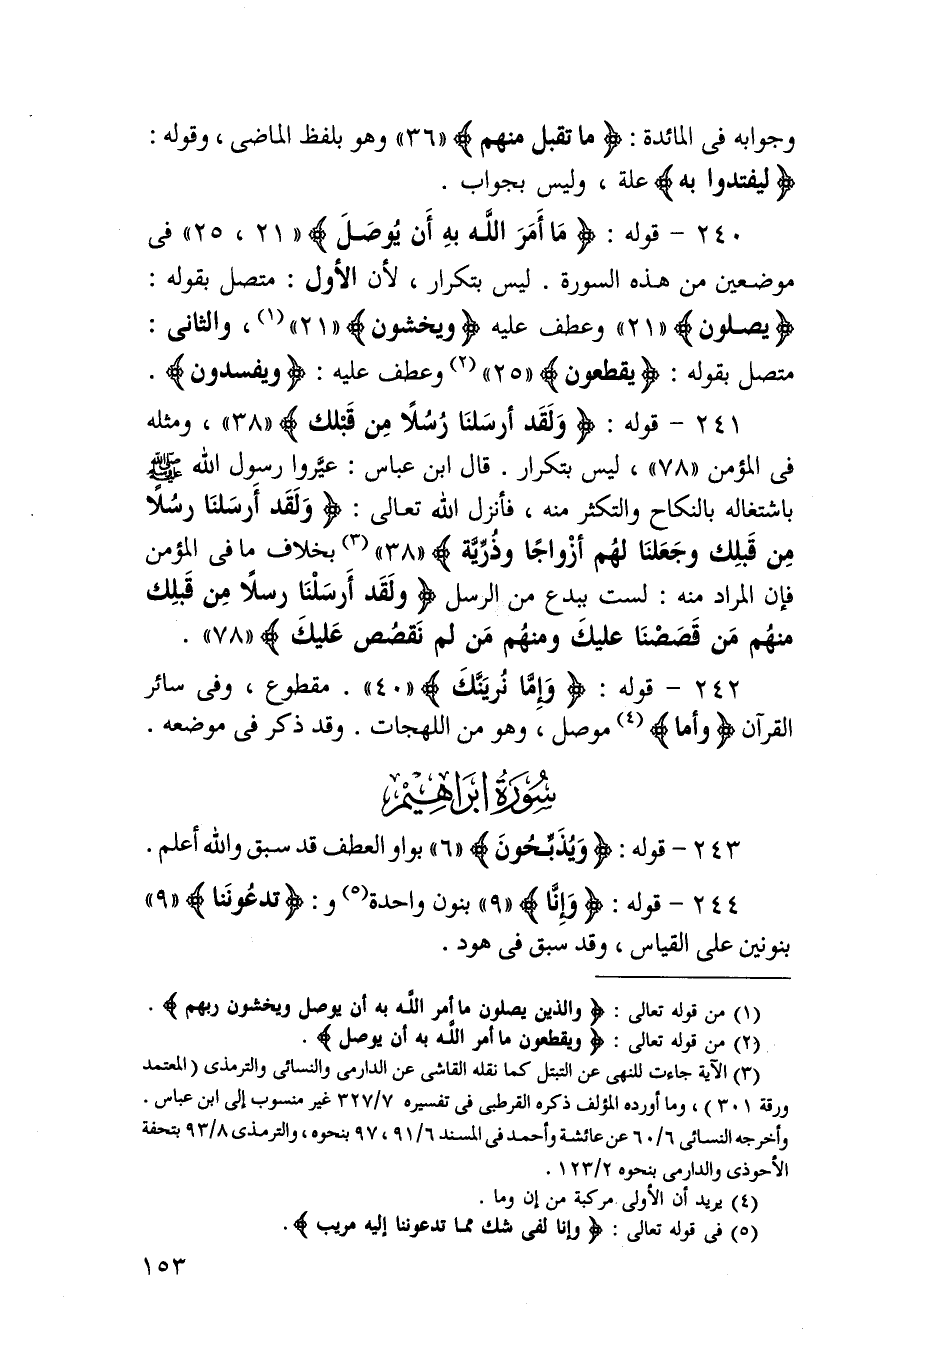 وجوابه فى المائدة : ﴿ ما تقبل منهم ﴾ «٣٦» وهو بلفظ الماضى ، وقوله :
﴿ ليفتدوا به ﴾ علة ، وليس بجواب .
٢٤٠ – قوله : ﴿ مَا أَمَرَ اللَّه بهِ أَن يُوصَلَ ﴾ « ٢١ ، ٢٥» فى
موضعين من هذه السورة . ليس بتكرار ، لأن الأول : متصل بقوله :
﴿ يصلون ﴾ «٢١» وعطف عليه ﴿ ويخشون ﴾ «٢١»(١) ، والثانى :
متصل بقوله : ﴿ يقطعون ﴾ «٢٥»(٢) وعطف عليه : ﴿ ويفسدون ﴾ .
٢٤١ – قوله : ﴿ وَلَقَد أرسَلنَا رُسُلًا مِن قَبْلك ﴾ «٣٨» ، ومثله
فى المؤمن «٧٨» ، ليس بتكرار . قال ابن عباس : عيَّروا رسول الله ﷺ
باشتغاله بالنكاح والتكثر منه ، فأنزل الله تعالى : ﴿ وَلَقَد أَرسَلنَا رسُلًا
مِن قَبلِك وجَعَلنَا لهُم أزْواجًا وذُرِّيَّة ﴾ «٣٨»(٣) بخلاف ما فى المؤمن
فإن المراد منه : لست ببدع من الرسل ﴿ ولَقَد أَرسَلْنَا رسلًا مِن قَبلِك
منهُم مَن قَصَصْنَا عليكَ ومنهُم مَن لم نَقصُص عَليكَ ﴾ «٧٨» .
٢٤٢ – قوله : ﴿ وَإِمَّا نُريَنَّكَ ﴾ «٤٠» . مقطوع ، وفى سائر
القرآن ﴿ وأما ﴾ (٤) موصل ، وهو من اللهجات . وقد ذكر فى موضعه .
سُورَةُ إبْرَاهِيْم
٢٤٣ – قوله : ﴿ وَيُذَبِّحُونَ ﴾ «٦» بواو العطف قد سبق والله أعلم .
٢٤٤ – قوله : ﴿ وَإِنَّا ﴾ «٩» بنون واحدة(٥) و : ﴿ تدعُونَنا ﴾ «٩»
بنونين على القياس ، وقد سبق فى هود .
(١) من قوله تعالى : ﴿ والذين يصلون ما أمر اللَّه به أن يوصل ويخشون ربهم ﴾ .
(٢) من قوله تعالى : ﴿ ويقطعون ما أمر اللَّه به أن يوصل ﴾ .
(٣) الآية جاءت للنهى عن التبتل كما نقله القاشى عن الدارمى والنسائى والترمذى ( المعتمد
ورقة ٣٠١ ) ، وما أورده المؤلف ذكره القرطبى فى تفسيره ٣٢٧/٧ غير منسوب إلى ابن عباس .
وأخرجه النسائى ٦٠/٦ عن عائشة وأحمد فى المسند ٩١/٦ ، ٩٧ بنحوه ، والترمذى ٩٣/٨ بتحفة
الأحوذى والدارمى بنحوه ١٢٣/٢ .
(٤) يريد أن الأولى مركبة من إن وما .
(٥) فى قوله تعالى : ﴿ وإنا لفى شك مما تدعوننا إليه مريب ﴾ .
١٥٣